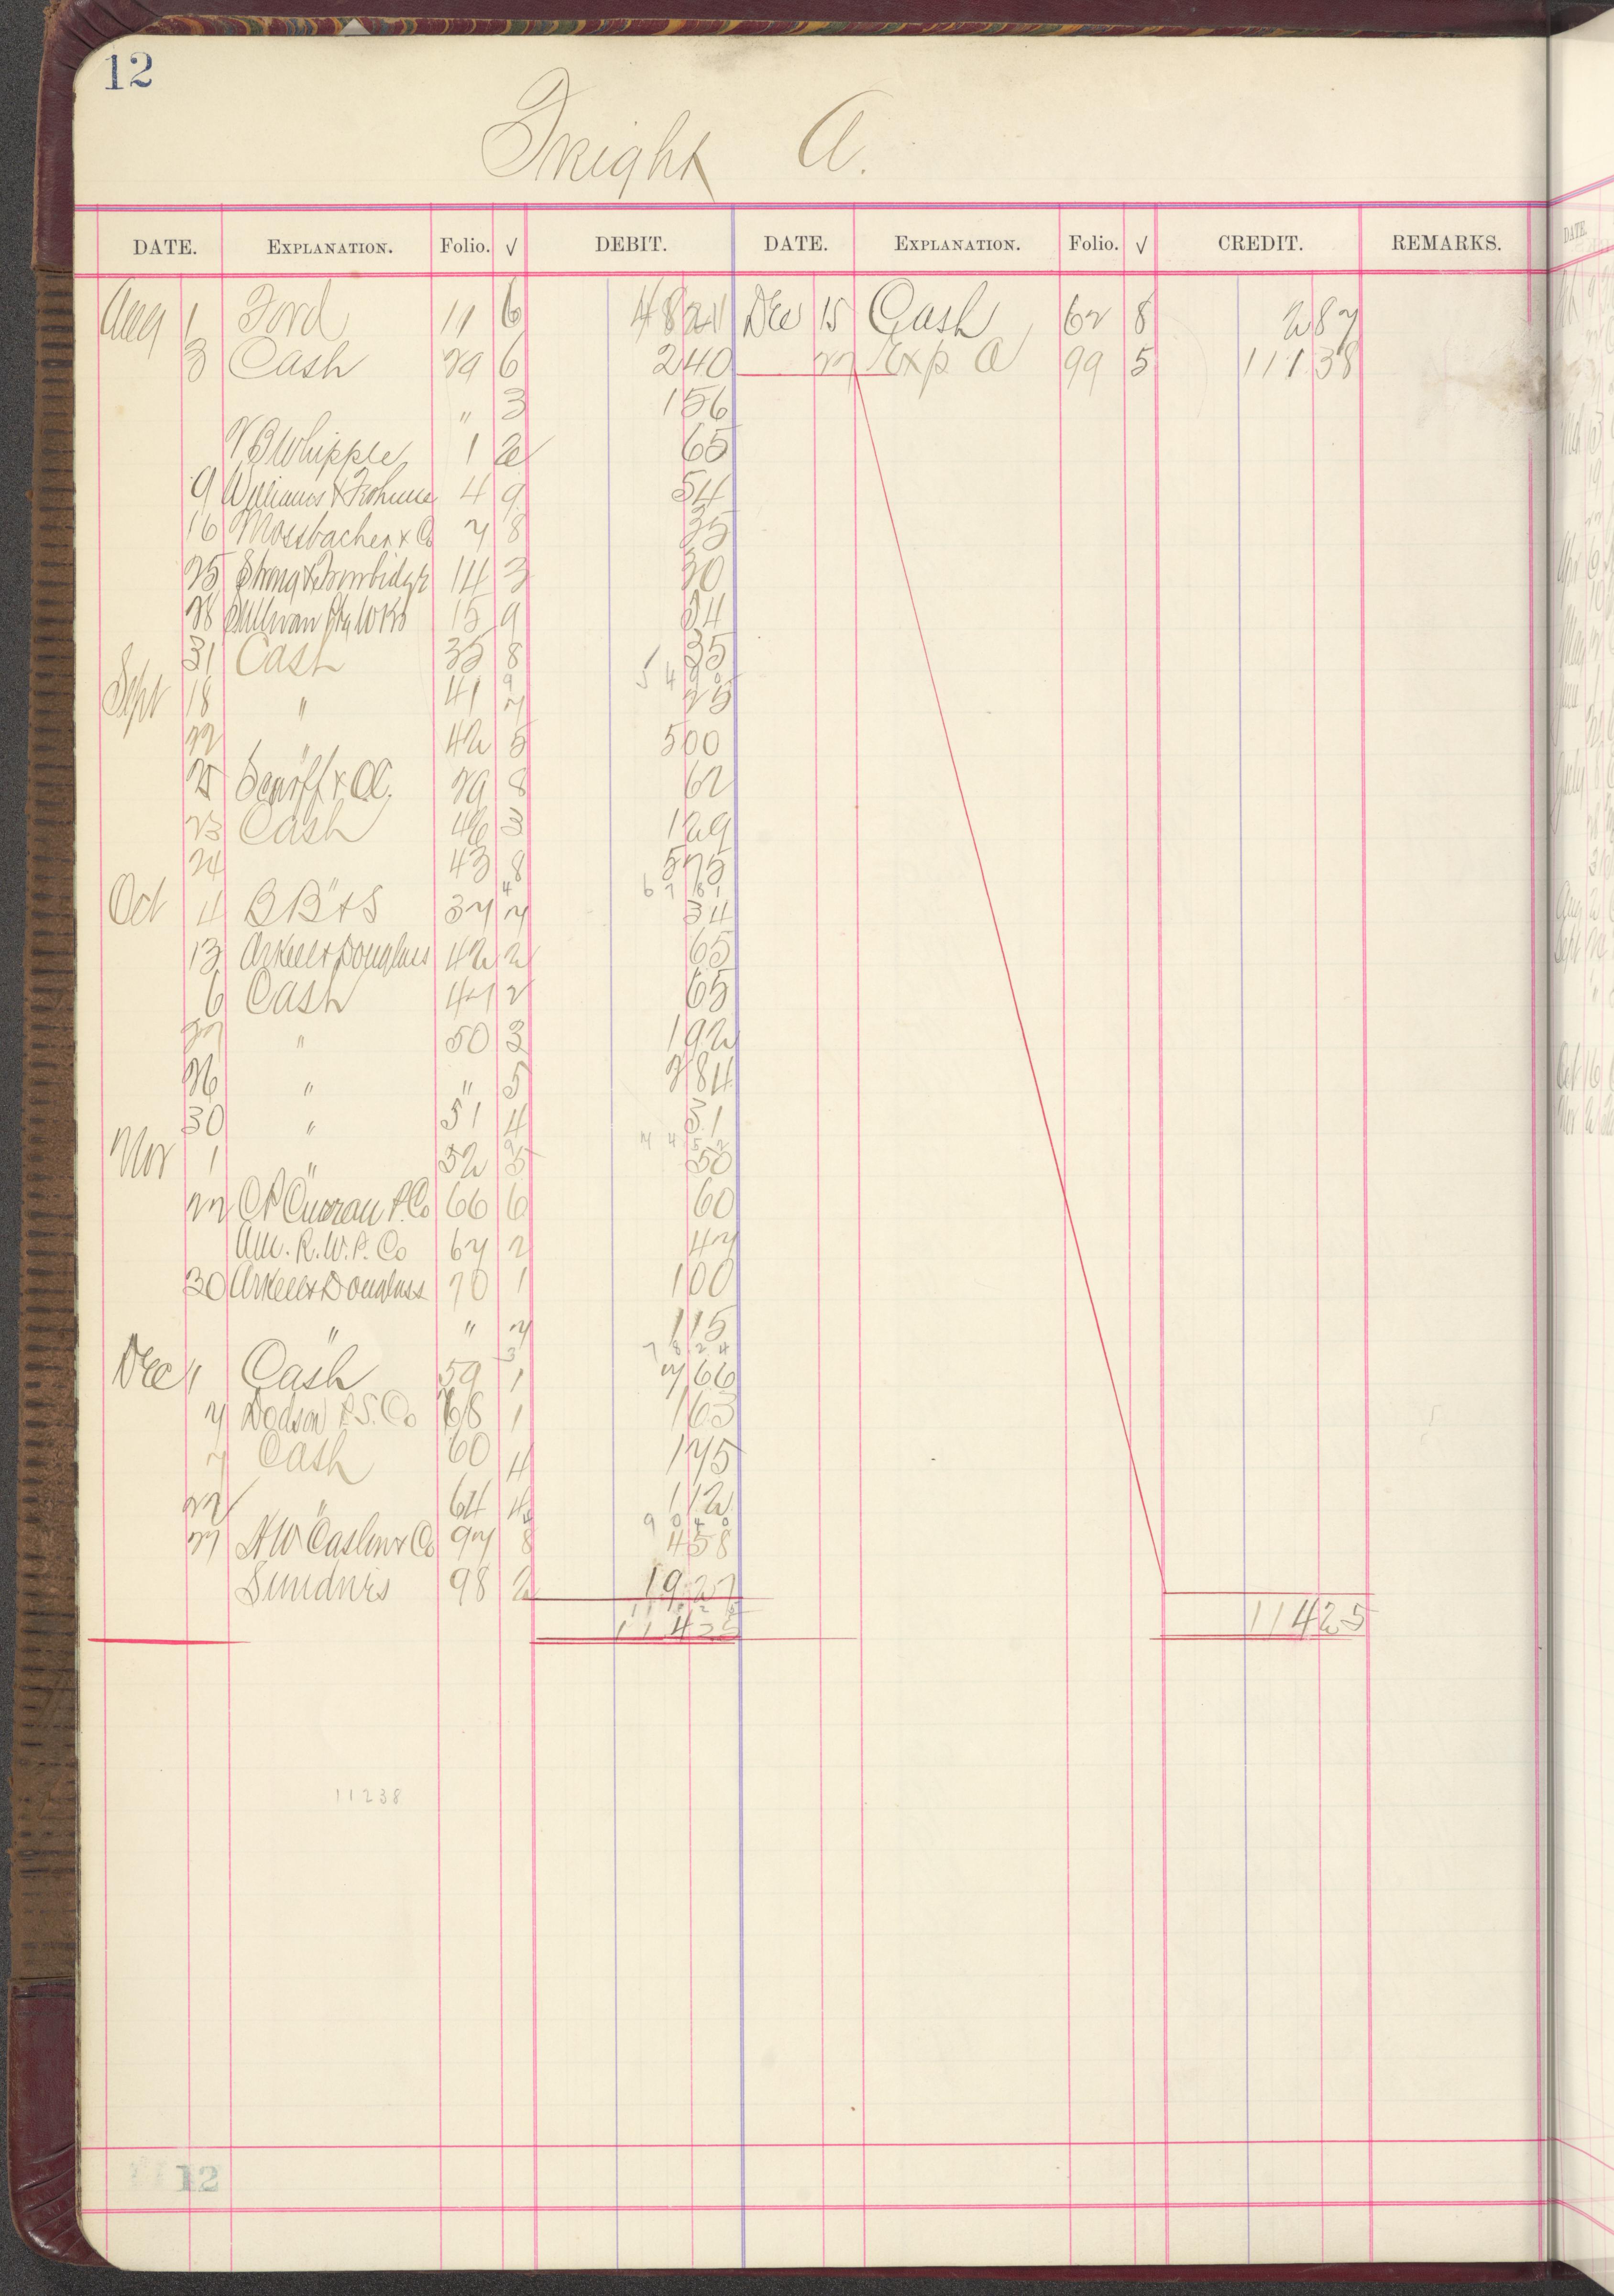 12
Freight A.
DATE. EXPLANATION. Folio. √ DEBIT. DATE. EXPLANATION. Folio. √ CREDIT. REMARKS.
Aug 1 Ford 11 6 48 21 Dec 15 Cash 62 8 2 87
3 Cash 29 6 2 40 27 Exp A 99 5 111 38
" 3 1 56
Whipple 1 2 65
9 Williams & 4 9 54
16 Mossbacher & Co 7 8 35
25 Strong & Trowbridge 14 3 30
28 Sullivan Wks 15 9 34
31 Cash 35 8 35
Sept 18 " 41 7 25
22 " 42 5 5 00
25 & Co. 29 8 62
23 Cash 46 3 1 29
24 " 43 8 5 75
Oct 4 B B & S 37 7 34
13 Arkell & Douglass 42 2 65
6 Cash 47 2 65
27 " 50 3 1 92
26 " " 5 2 84
30 " 51 4 31
Nov 1 " 52 5 50
22 Curran P. Co 66 6 60
Am. R. W. P. Co 67 2 47
30 Arkell & Douglass 70 1 1 00
" " 7 1 15
7 8 2 4
Dec 1 Cash 59 1 7 66
7 Dodson P. S. Co 68 1 1 63
7 Cash 60 4 1 75
22 " 64 4 1 12
9 0 4 0
27 H W Caslon & Co 97 8 4 58
Sundries 98 2 19 27
114 25 114 25
11238
12